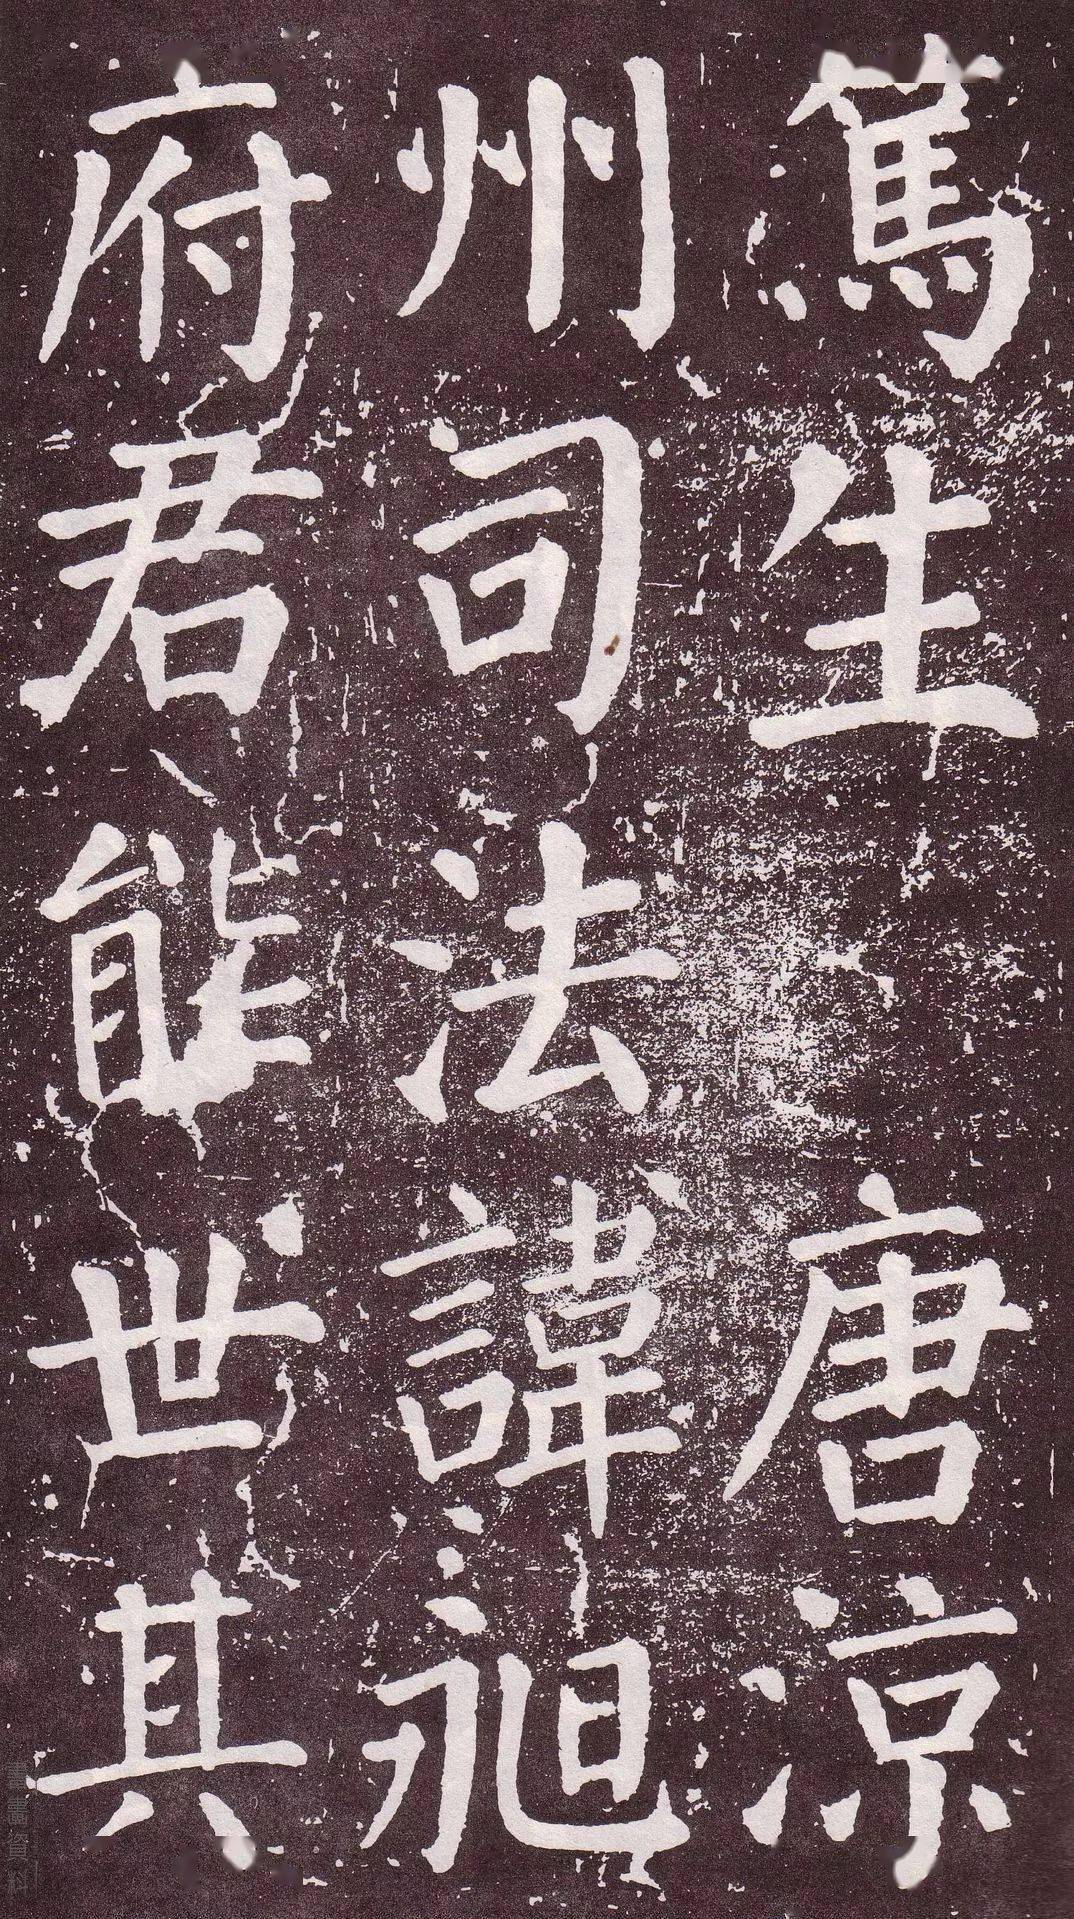 篤生 唐涼
州司法諱昶
府君能世其